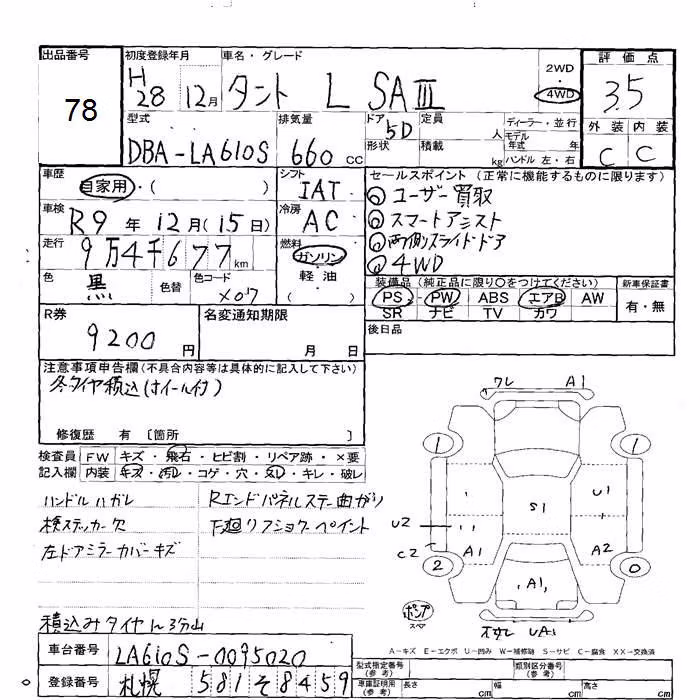 出品番号
78
初度登録年月
H28 12月
車名・グレード
タント L SAⅢ
2WD
・
4WD
評価点
3.5
外装 内装
C C
型式
DBA-LA610S
排気量
660 cc
ドア 5D
形状
定員 人
積載 kg
ディーラー・並行
モデル
年式 年
ハンドル 左・右
車歴
自家用・( )
シフト
IAT
車検
R9年 12月(15日)
冷房
AC
走行
9万4千677km
燃料
ガソリン
軽油
( )
色
黒
色替
色コード
X07
セールスポイント(正常に機能するものに限ります)
◎ユーザー買取
◎スマートアシスト
◎両側スライドドア
◎4WD
装備品(純正品に限り○をつけてください)
PS・PW・ABS・エアB・AW
SR ナビ TV カワ
新車保証書
有・無
後日品
R券
9200円
名変通知期限
月 日
注意事項申告欄(不具合内容等は具体的に記入して下さい)
冬タイヤ積込(ホイール付)
修復歴 有 〔箇所 〕
検査員 FW キズ・飛石・ヒビ割・リペア跡・×要
記入欄 内装 キズ・汚レ・コゲ・穴・スレ・キレ・破レ
ハンドルハガレ
検ステッカー欠
左ドアミラーカバーキズ
Rエンドパネルステー曲がり
下廻リフショクペイント
積込みタイヤ
ワレ A1
1 1
U1
S1
U2
C2
A1 A2
2 0
A1
ポンプ
スペア
UA1
A-キズ E-エクボ U-凹み W-補修跡 S-サビ C-腐食 XX-交換済
車台番号
LA610S-0095020
登録番号
札幌 581 そ 8459
型式指定番号
(参考)
類別区分番号
(参考)
車庫証明用
(参考)
長さ cm
幅 cm
高さ cm